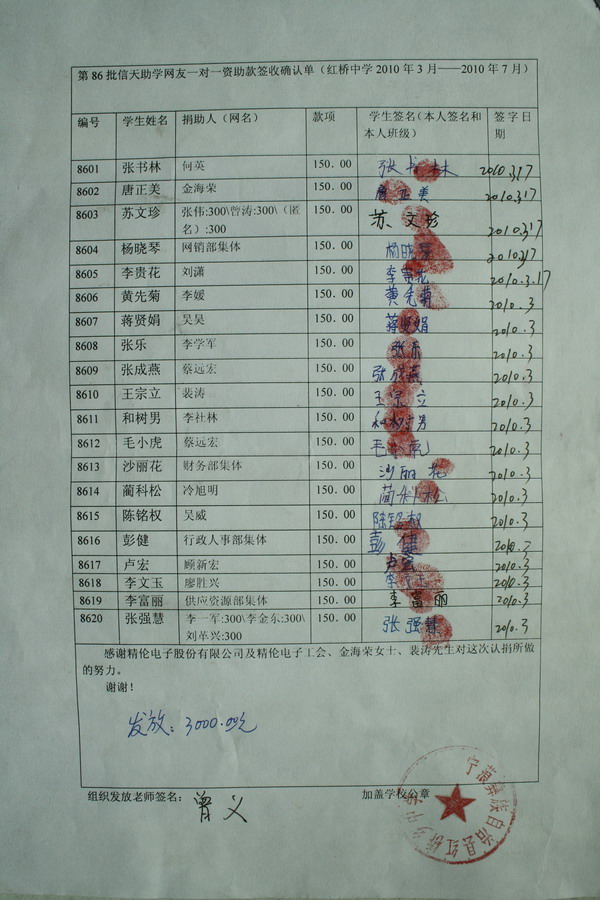 第 86 批信天助学网友一对一资助款签收确认单（红桥中学 2010 年 3 月——2010 年 7 月）
编号 学生姓名 捐助人（网名） 款项 学生签名（本人签名和本人班级） 签字日期
8601 张书林 何英 150.00 张书林 2010.3.17
8602 唐正美 金海荣 150.00 唐正美 2010.3.17
8603 苏文珍 张伟:300\曾涛:300\（匿名）:300 150.00 苏文珍 2010.3.17
8604 杨晓琴 网销部集体 150.00 杨晓琴 2010.3.17
8605 李贵花 刘潇 150.00 李贵花 2010.3.17
8606 黄先菊 李媛 150.00 黄先菊 2010.3
8607 蒋贤娟 吴昊 150.00 蒋贤娟 2010.3
8608 张乐 李学军 150.00 张乐 2010.3
8609 张成燕 蔡远宏 150.00 张成燕 2010.3
8610 王宗立 裴涛 150.00 王宗立 2010.3
8611 和树男 李社林 150.00 和树男 2010.3
8612 毛小虎 蔡远宏 150.00 毛小虎 2010.3
8613 沙丽花 财务部集体 150.00 沙丽花 2010.3
8614 蔺科松 冷旭明 150.00 蔺科松 2010.3
8615 陈铭权 吴威 150.00 陈铭权 2010.3
8616 彭健 行政人事部集体 150.00 彭健 2010.3
8617 卢宏 顾新宏 150.00 卢宏 2010.3
8618 李文玉 廖胜兴 150.00 李文玉 2010.3
8619 李富丽 供应资源部集体 150.00 李富丽 2010.3
8620 张强慧 李一军:300\李金东:300\刘革兴:300 150.00 张强慧 2010.3
感谢精伦电子股份有限公司及精伦电子工会、金海荣女士、裴涛先生对这次认捐所做
的努力。
谢谢！
发放：3000.00元
组织发放老师签名： 曾义 加盖学校公章
宁蒗彝族自治县红桥乡中学